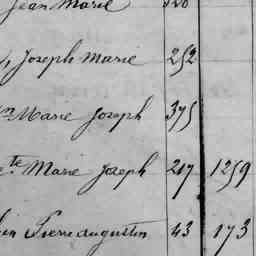 Jean Marie
, Joseph Marie 252
Marie Joseph 375
te Marie Joseph 217 1259
in Pierre augustin 43 173